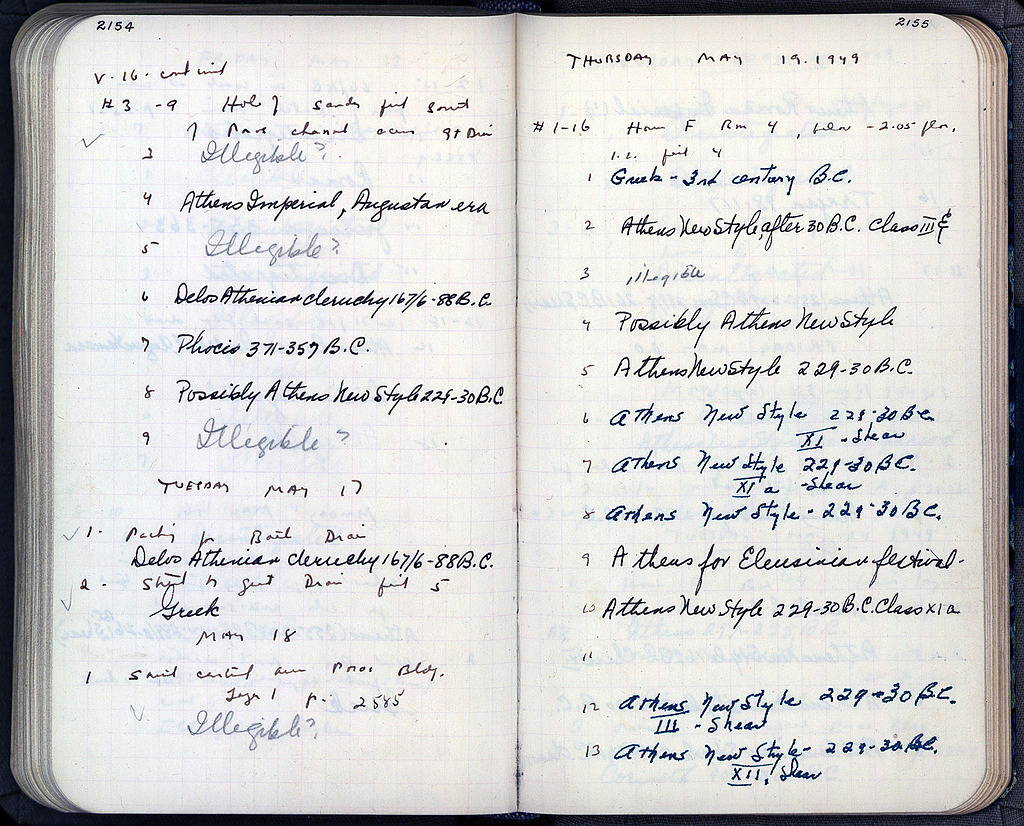 2154
V. 16. continued
#3 - 9 Hole of sandy fill South
of Poros channel across Gt Drain
3 Illegible?
4 Athens Imperial, Augustan era
5 Illegible?
6 Delos Athenian cleruchy 167/6-88 B.C.
7 Phocis 371-357 B.C.
8 Possibly Athens New Style 229-30 B.C.
9 Illegible?
TUESDAY MAY 17
1. Drain
Delos Athenian cleruchy 167/6-88 B.C.
2. Drain fill 5
Greek
MAY 18
1 Poros Bldg.
Layer 1 p. 2585
Illegible?
2155
THURSDAY MAY 19. 1949
#1-16 House F Rm 4, -2.05
4
1 Greek - 3rd century B.C.
2 Athens New Style, after 30 B.C. Class III &
3 illegible
4 Possibly Athens New Style
5 Athens New Style 229-30 B.C.
6 Athens New Style 229-30 B.C.
XI - Shear
7 Athens New Style 229-30 B.C.
XI a - Shear
8 Athens New Style - 229-30 B.C.
9 Athens for Eleusinian festival.
10 Athens New Style 229-30 B.C. Class XI a
11
12 Athens New Style 229-30 B.C.
III - Shear
13 Athens New Style - 229-30 B.C.
XII, Shear